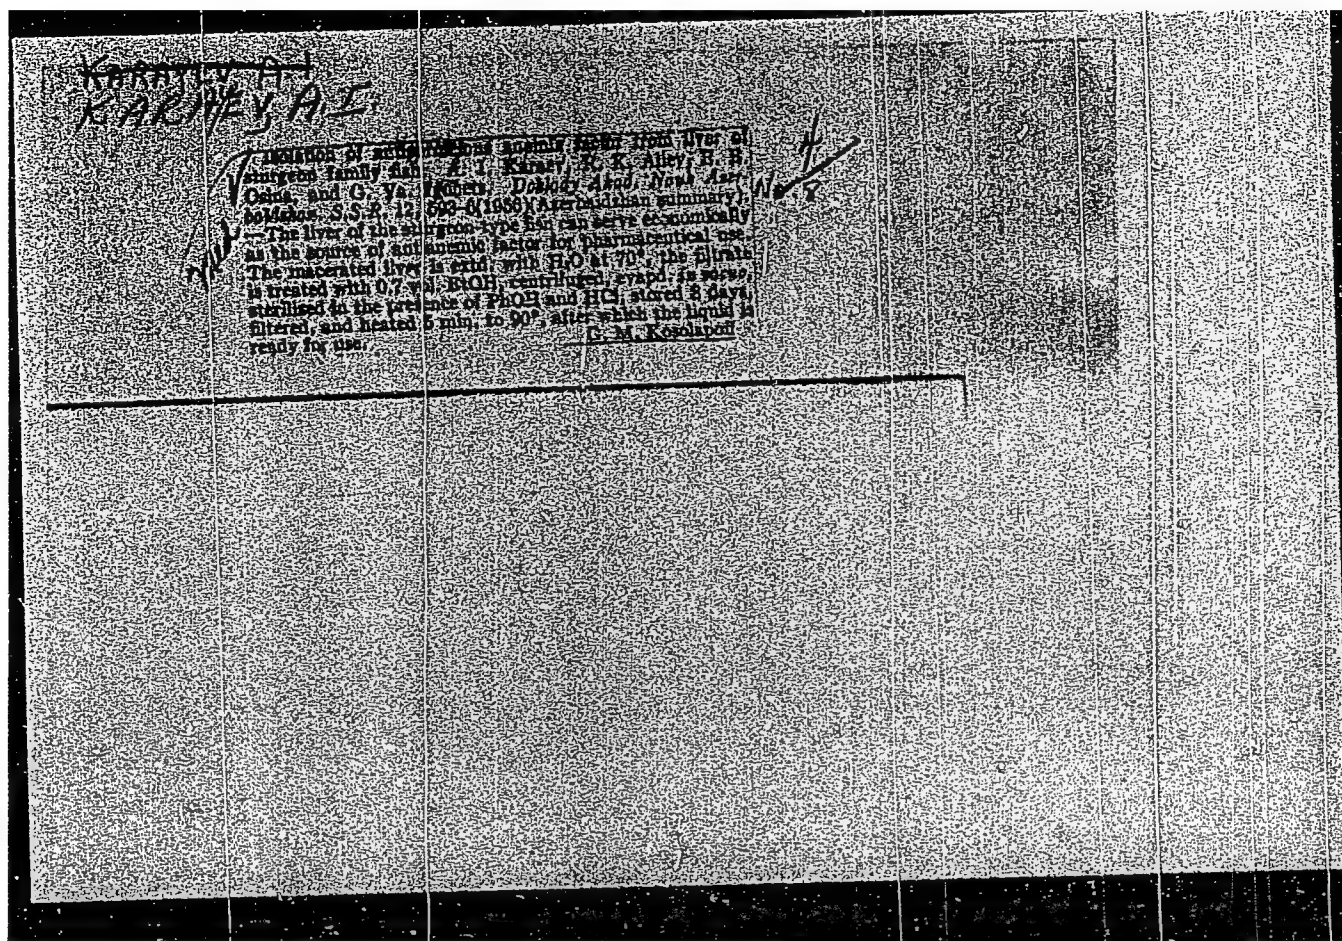 KARAYEV A I
KARAEV, A. I.
Isolation of anemia factor from liver of
sturgeon family fish. A. I. Karaev, R. K. Aliev, E. B.
Osina, and G. Ya. Doklady Akad. Nauk Azer-
baidzhan. S.S.R. 12, (1956)(Azerbaidzhan summary).
—The liver of the sturgeon-type fish can serve economically
as the source of antianemic factor for pharmaceutical use.
The macerated liver is extd. with H₂O at 70°, the filtrate
is treated with 0.7 vol. EtOH, centrifuged, evapd. in vacuo,
sterilized in the presence of PhOH and HCl, stored 8 days,
filtered, and heated 5 min. to 90°, after which the liquid is
ready for use.
G. M. Kosolapoff